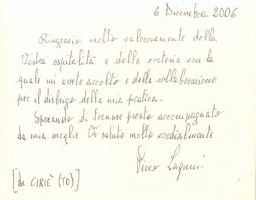 6 Dicembre 2006
Ringrazio molto calorosamente della
Vostra ospitalità e della cortesia con la
quale mi avete accolto e della collaborazione
per il disbrigo della mia pratica.
Sperando di tornare presto accompagnato
da mia moglie Vi saluto molto cordialmente
Piero
[da CIRIÈ (TO)]